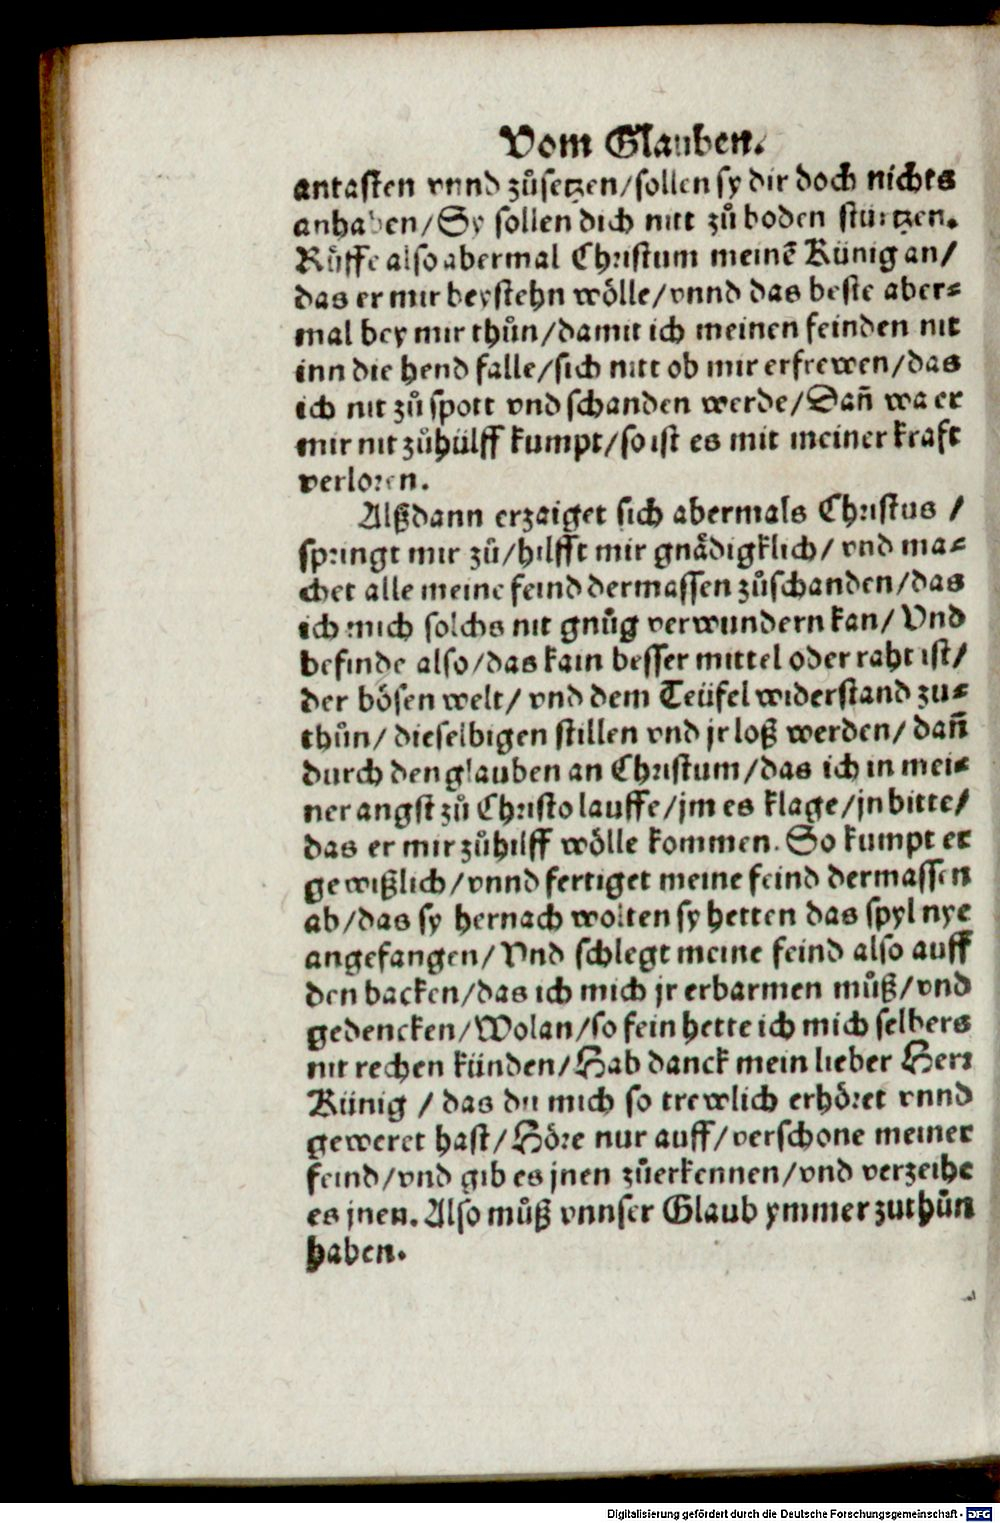 Vom Glauben.
antasten vnnd zůsetzen/sollen sy dir doch nichts
anhaben/Sy sollen dich nitt zů boden stürtzen.
Růffe also abermal Christum meinē Künig an/
das er mir beystehn wölle/vnnd das beste aber⸗
mal bey mir thůn/damit ich meinen feinden nit
inn die hend falle/sich nitt ob mir erfrewen/das
ich nit zů spott vnd schanden werde/Dañ wa er
mir nit zůhülff kumpt/so ist es mit meiner kraft
verloren.
Alßdann erzaiget sich abermals Christus /
springt mir zů/hilfft mir gnådigklich/ vnd ma⸗
chet alle meine feind dermassen zůschanden/das
ich mich solchs nit gnůg verwundern kan/ Vnd
befinde also/das kain besser mittel oder raht ist/
der bösen welt/ vnd dem Teüfel widerstand zu⸗
thůn/ dieselbigen stillen vnd jr loß werden/ dañ
durch den glauben an Christum/das ich in mei⸗
ner angst zů Christo lauffe/jm es klage/jn bitte/
das er mir zůhilff wölle kommen. So kumpt er
gewißlich/vnnd fertiget meine feind dermassen
ab/das sy hernach wolten sy hetten das spyl nye
angefangen/Vnd schlegt meine feind also auff
den backen/das ich mich jr erbarmen můß/vnd
gedencken/Wolan/so fein hette ich mich selbers
nit rechen künden/Hab danck mein lieber Herr
Künig / das du mich so trewlich erhöret vnnd
geweret hast/Höre nur auff/verschone meiner
feind/vnd gib es jnen zůerkennen/vnd verzeihe
es jnen. Also můß vnnser Glaub ymmer zuthůn
haben.
Digitalisierung gefördert durch die Deutsche Forschungsgemeinschaft - DFG